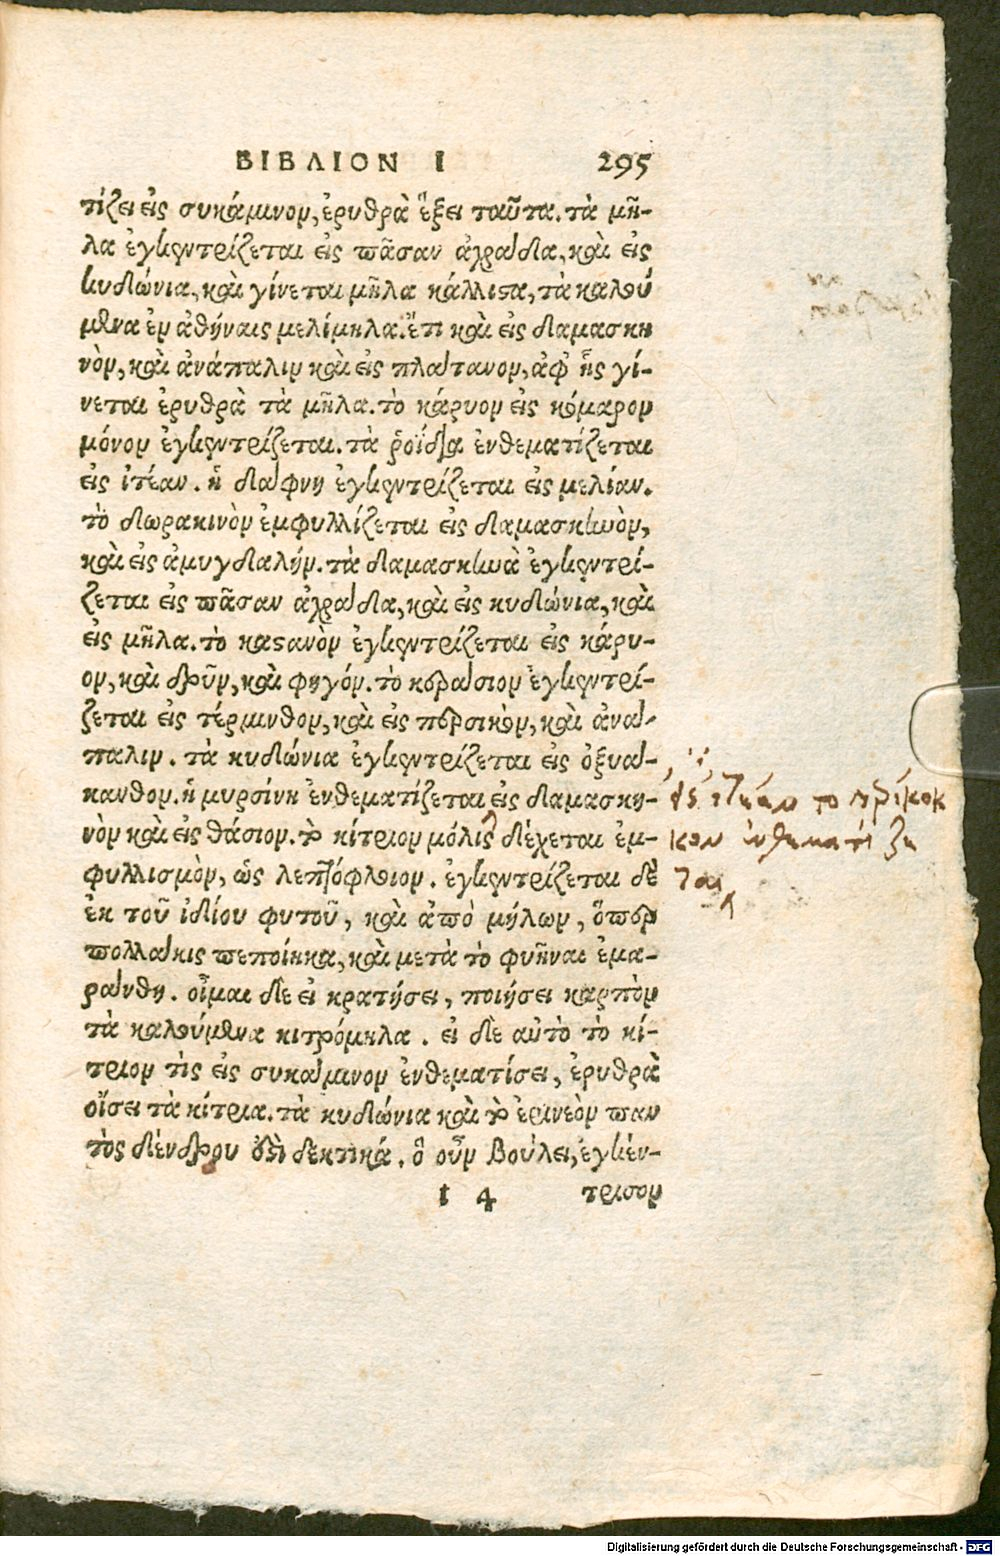 ΒΙΒΛΙΟΝ Ι 295
τίζει εἰς συκάμινον, ἐρυθρὰ ἕξει ταῦτα. τὰ μῆ-
λα ἐγκεντρίζεται εἰς πᾶσαν ἀχράδα, καὶ εἰς
κυδώνια, καὶ γίνεται μῆλα κάλλιστα, τὰ καλού
μενα ἐν ἀθήναις μελίμηλα. ἔτι καὶ εἰς δαμασκη
νὸν, καὶ ἀνάπαλιν καὶ εἰς πλάτανον, ἀφ' ἧς γί-
νεται ἐρυθρὰ τὰ μῆλα. τὸ κάρυον εἰς κόμαρον
μόνον ἐγκεντρίζεται. τὰ ῥοΐδια ἐνθεματίζεται
εἰς ἰτέαν. ἡ δάφνη ἐγκεντρίζεται εἰς μελίαν.
τὸ δωρακινὸν ἐμφυλλίζεται εἰς δαμασκηνὸν,
καὶ εἰς ἀμυγδαλήν. τὰ δαμασκηνὰ ἐγκεντρί-
ζεται εἰς πᾶσαν ἀχράδα, καὶ εἰς κυδώνια, καὶ
εἰς μῆλα. τὸ καστανὸν ἐγκεντρίζεται εἰς κάρυ-
ον, καὶ δρῦν, καὶ φηγόν. τὸ κεράσιον ἐγκεντρί-
ζεται εἰς τέρμινθον, καὶ εἰς περσικὸν, καὶ ἀνά-
παλιν. τὰ κυδώνια ἐγκεντρίζεται εἰς ὀξυά-
κανθον. ἡ μυρσίνη ἐνθεματίζεται εἰς δαμασκη-
νὸν καὶ εἰς θάσιον. τὸ κίτριον μόλις δέχεται ἐμ-
φυλλισμὸν, ὡς λεπτόφλοιον. ἐγκεντρίζεται δὲ
ἐκ τοῦ ἰδίου φυτοῦ, καὶ ἀπὸ μήλων, ὅπερ
πολλάκις πεποίηκα, καὶ μετὰ τὸ φυῆναι ἐμα-
ράνθη. οἶμαι δὲ εἰ κρατήσει, ποιήσει καρπὸν
τὰ καλούμενα κιτρόμηλα. εἰ δὲ αὐτὸ τὸ κί-
τριον τὶς εἰς συκάμινον ἐνθεματίσει, ἐρυθρὰ
οἴσει τὰ κίτρια. τὰ κυδώνια καὶ τὸ ἐρινεὸν παν
τὸς δένδρου δεκτικά. ὃ οὖν βούλει, ἐγκέν-
Ι 4 τρισον
το πρίκοκ
κον ἐνθεματίζε
ται
Digitalisierung gefördert durch die Deutsche Forschungsgemeinschaft - DFG